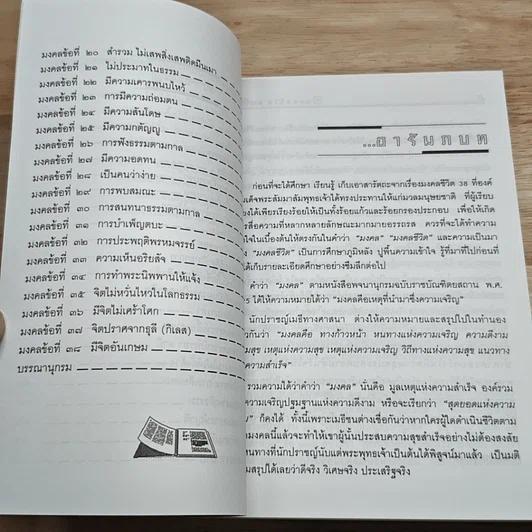 มงคลข้อที่ ๒๐ สำรวม ไม่เสพสิ่งเสพติดมึนเมา
มงคลข้อที่ ๒๑ ไม่ประมาทในธรรม
มงคลข้อที่ ๒๒ มีความเคารพนบไหว้
มงคลข้อที่ ๒๓ การมีความถ่อมตน
มงคลข้อที่ ๒๔ มีความสันโดษ
มงคลข้อที่ ๒๕ มีความกตัญญู
มงคลข้อที่ ๒๖ การฟังธรรมตามกาล
มงคลข้อที่ ๒๗ มีความอดทน
มงคลข้อที่ ๒๘ เป็นคนว่าง่าย
มงคลข้อที่ ๒๙ การพบสมณะ
มงคลข้อที่ ๓๐ การสนทนาธรรมตามกาล
มงคลข้อที่ ๓๑ การบำเพ็ญตบะ
มงคลข้อที่ ๓๒ การประพฤติพรหมจรรย์
มงคลข้อที่ ๓๓ ความเห็นอริยสัจ
มงคลข้อที่ ๓๔ การทำพระนิพพานให้แจ้ง
มงคลข้อที่ ๓๕ จิตไม่หวั่นไหวในโลกธรรม
มงคลข้อที่ ๓๖ มีจิตไม่เศร้าโศก
มงคลข้อที่ ๓๗ จิตปราศจากธุลี (กิเลส)
มงคลข้อที่ ๓๘ มีจิตอันเกษม
บรรณานุกรม
...อารัมภบท
ก่อนที่จะได้ศึกษา เรียนรู้ เก็บเอาสารัตถะจากเรื่องมงคลชีวิต 38 ที่องค์
เด็จพระสัมมาสัมพุทธเจ้าได้ทรงประทานให้แก่มวลมนุษยชาติ ที่ผู้เรียบ
ได้เพียรเรียงร้อยให้เป็นทั้งร้อยแก้วและร้อยกรองประกอบ เพื่อให้เกิด
ความหลากหลายลักษณะมากมายอรรถรส ควรที่จะได้ทำความ
ใจในเบื้องต้นให้ตรงกันในคำว่า "มงคล" "มงคลชีวิต" และความเป็นมา
"มงคลชีวิต" เป็นการศึกษาภูมิหลัง ปูพื้นความเข้าใจ รู้ที่มาที่ไปก่อนที่
ได้เก็บรายละเอียดศึกษาอย่างซึมลึกต่อไป
คำว่า "มงคล" ตามหนังสือพจนานุกรมฉบับราชบัณฑิตยสถาน พ.ศ.
5 ได้ให้ความหมายไว้ว่า "มงคลคือเหตุที่นำมาซึ่งความเจริญ"
นักปราชญ์เมธีทางศาสนา ต่างให้ความหมายและสรุปไปในทำนอง
วกันว่า "มงคลคือ ทางก้าวหน้า หนทางแห่งความเจริญ ความดีงาม
สุข เหตุแห่งความสุข เหตุแห่งความเจริญ วิถีทางแห่งความสุข แนวทาง
ความสำเร็จ"
รวมความได้ว่าคำว่า "มงคล" นั้นคือ มูลเหตุแห่งความสำเร็จ องค์รวม
ความเจริญปฐมฐานแห่งความดีงาม หรือจะเรียกว่า "สุดยอดแห่งความ
" ก็คงได้ ทั้งนี้เพราะเมธีชนต่างเชื่อกันว่าหากใครผู้ใดดำเนินชีวิตตาม
มงคลนี้แล้วจะทำให้เขาผู้นั้นประสบความสำเร็จอย่างไม่ต้องสงสัย
หนทางที่นักปราชญ์นับแต่พระพุทธเจ้าเป็นต้นได้พิสูจน์มาแล้ว เป็นมติ
สรุปได้เลยว่าดีจริง วิเศษจริง ประเสริฐจริง